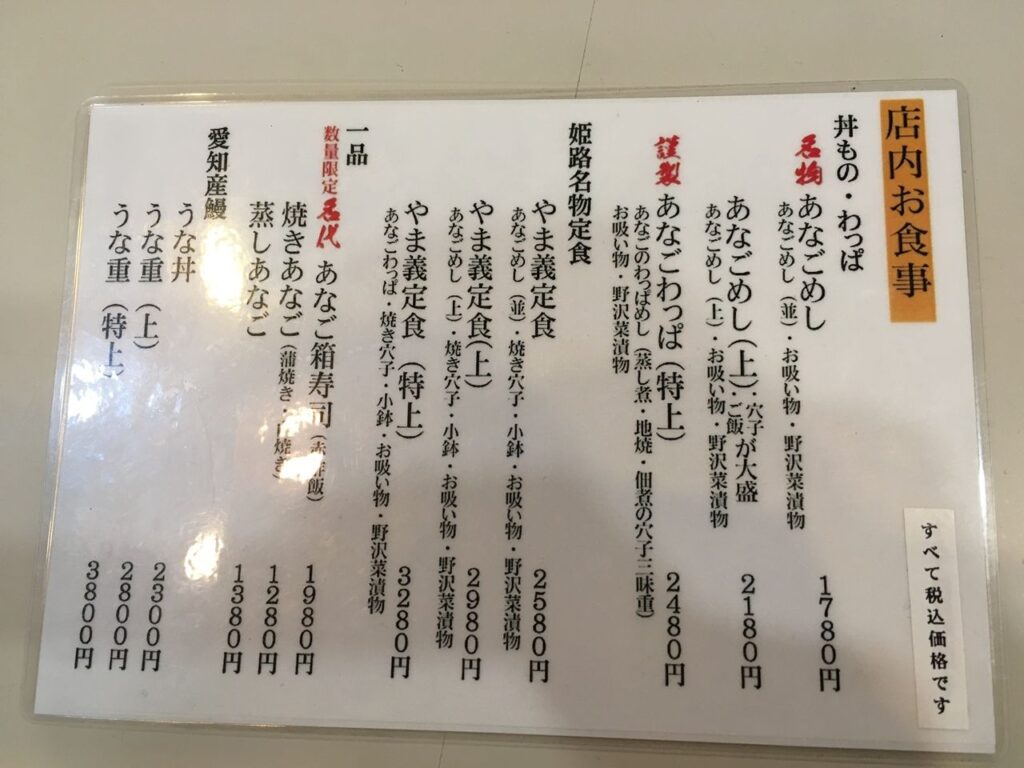 店内お食事
すべて税込価格です
丼もの・わっぱ
名物 あなごめし 1780円
あなごめし（並）・お吸い物・野沢菜漬物
あなごめし（上）・穴子・ご飯が大盛 2180円
あなごめし（上）・お吸い物・野沢菜漬物
謹製 あなごわっぱ（特上） 2480円
あなごのわっぱめし（蒸し煮・地焼・佃煮の穴子三味重）
お吸い物・野沢菜漬物
姫路名物定食
やま義定食 2580円
あなごめし（並）・焼き穴子・小鉢・お吸い物・野沢菜漬物
やま義定食（上） 2980円
あなごめし（上）・焼き穴子・小鉢・お吸い物・野沢菜漬物
やま義定食（特上） 3280円
あなごわっぱ・焼き穴子・小鉢・お吸い物・野沢菜漬物
一品
数量限定 名代 あなご箱寿司 1980円
焼きあなご（蒲焼き・焼き） 1280円
蒸しあなご 1380円
愛知産鰻
うな丼 2300円
うな重（上） 2800円
うな重（特上） 3800円